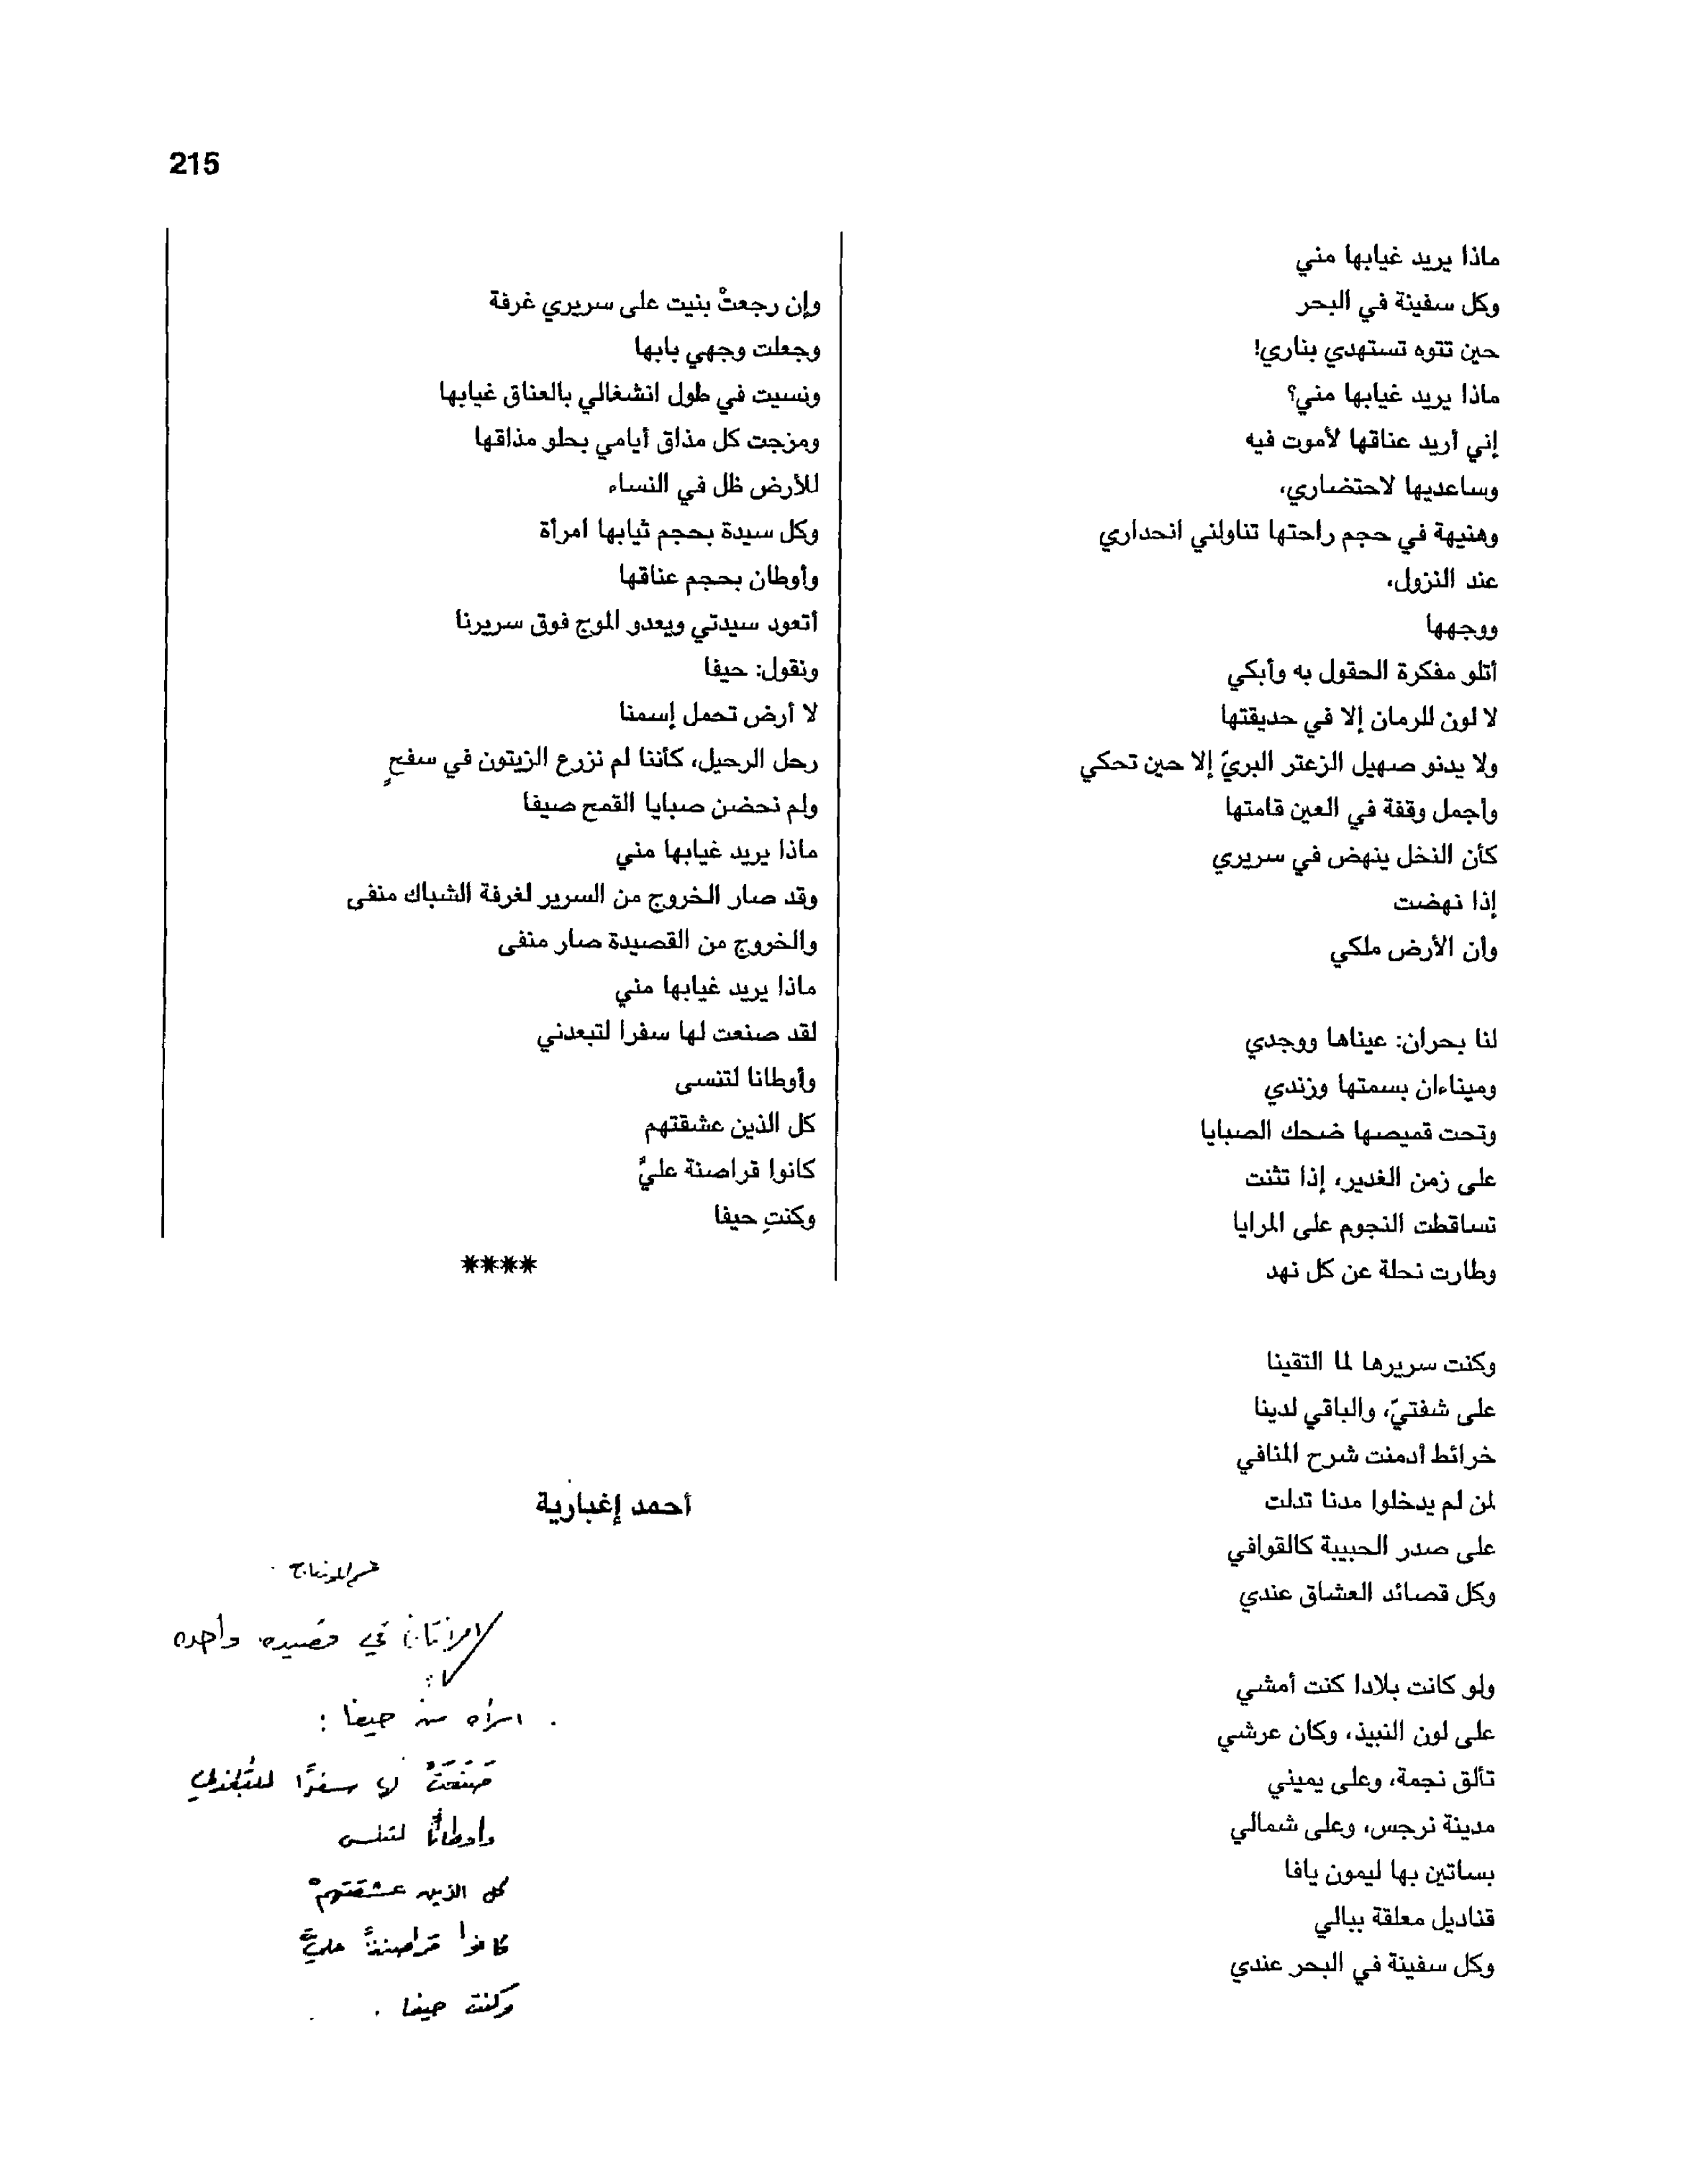 215
ماذا يريد غيابها مني
وكل سفينة في البحر
حين تتوه تستهدي بناري!
ماذا يريد غيابها مني؟
إني أريد عناقها لأموت فيه
وساعديها لاحتضاري،
وهنيهة في حجم راحتها تناولني انحداري
عند النزول،
ووجهها
أتلو مفكرة الحقول به وأبكي
لا لون للرمان إلا في حديقتها
ولا يدنو صهيل الزعتر البريّ إلا حين تحكي
وأجمل وقفة في العين قامتها
كأن النخل ينهض في سريري
إذا نهضت
وأن الأرض ملكي
لنا بحران: عيناها ووجدي
وميناءان بسمتها وزندي
وتحت قميصها ضحك الصبايا
على زمن الغدير، إذا تثنت
تساقطت النجوم على المرايا
وطارت نحلة عن كل نهد
وكنت سريرها لما التقينا
على شفتيّ، والباقي لدينا
خرائط أدمنت شرح المنافي
لمن لم يدخلوا مدنا تدلت
على صدر الحبيبة كالقوافي
وكل قصائد العشاق عندي
ولو كانت بلادا كنت أمشي
على لون النبيذ، وكان عرشي
تألق نجمة، وعلى يميني
مدينة نرجس، وعلى شمالي
بساتين بها ليمون يافا
قناديل معلقة ببالي
وكل سفينة في البحر عندي
وإن رجعتْ بنيت على سريري غرفة
وجعلت وجهي بابها
ونسيت في طول انشغالي بالعناق غيابها
ومزجت كل مذاق أيامي بحلو مذاقها
للأرض ظل في النساء
وكل سيدة بحجم ثيابها امرأة
وأوطان بحجم عناقها
أتعود سيدتي ويعدو الموج فوق سريرنا
ونقول: حيفا
لا أرض تحمل إسمنا
رحل الرحيل، كأننا لم نزرع الزيتون في سفحٍ
ولم نحضن صبايا القمح صيفا
ماذا يريد غيابها مني
وقد صار الخروج من السرير لغرفة الشباك منفى
والخروج من القصيدة صار منفى
ماذا يريد غيابها مني
لقد صنعت لها سفرا لتبعدني
وأوطانا لتنسى
كل الذين عشقتهم
كانوا قراصنة عليَّ
وكنتِ حيفا
****
أحمد إغبارية
امرأتان في قصيده واحده
امرأه من حيفا :
صَنَعَتْ لها سفرًا لتُبْعدني
وأوطانًا لتنسى
كل الذين عشقتهمْ
كانوا قراصنةً عليَّ
وكنت حيفا .